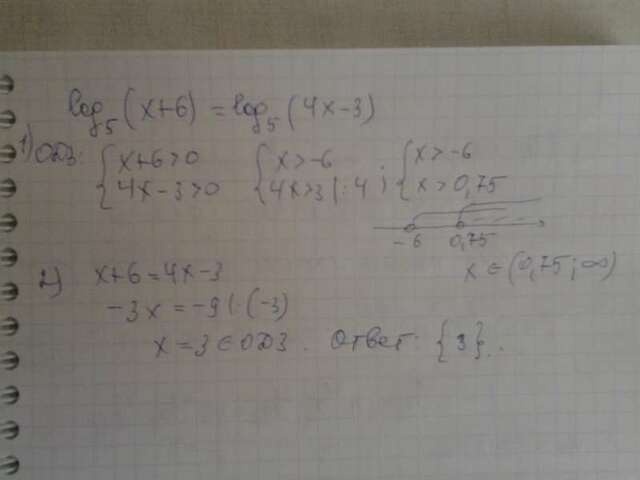 log₅(x+6) = log₅(4x-3)
1) ОДЗ: {x+6>0 {x>-6 {x>-6
{4x-3>0 {4x>3 |:4 ; {x>0,75
-6 0,75
x∈(0,75; ∞)
2) x+6=4x-3
-3x = -9 |:(-3)
x=3∈ОДЗ. Ответ: {3}.